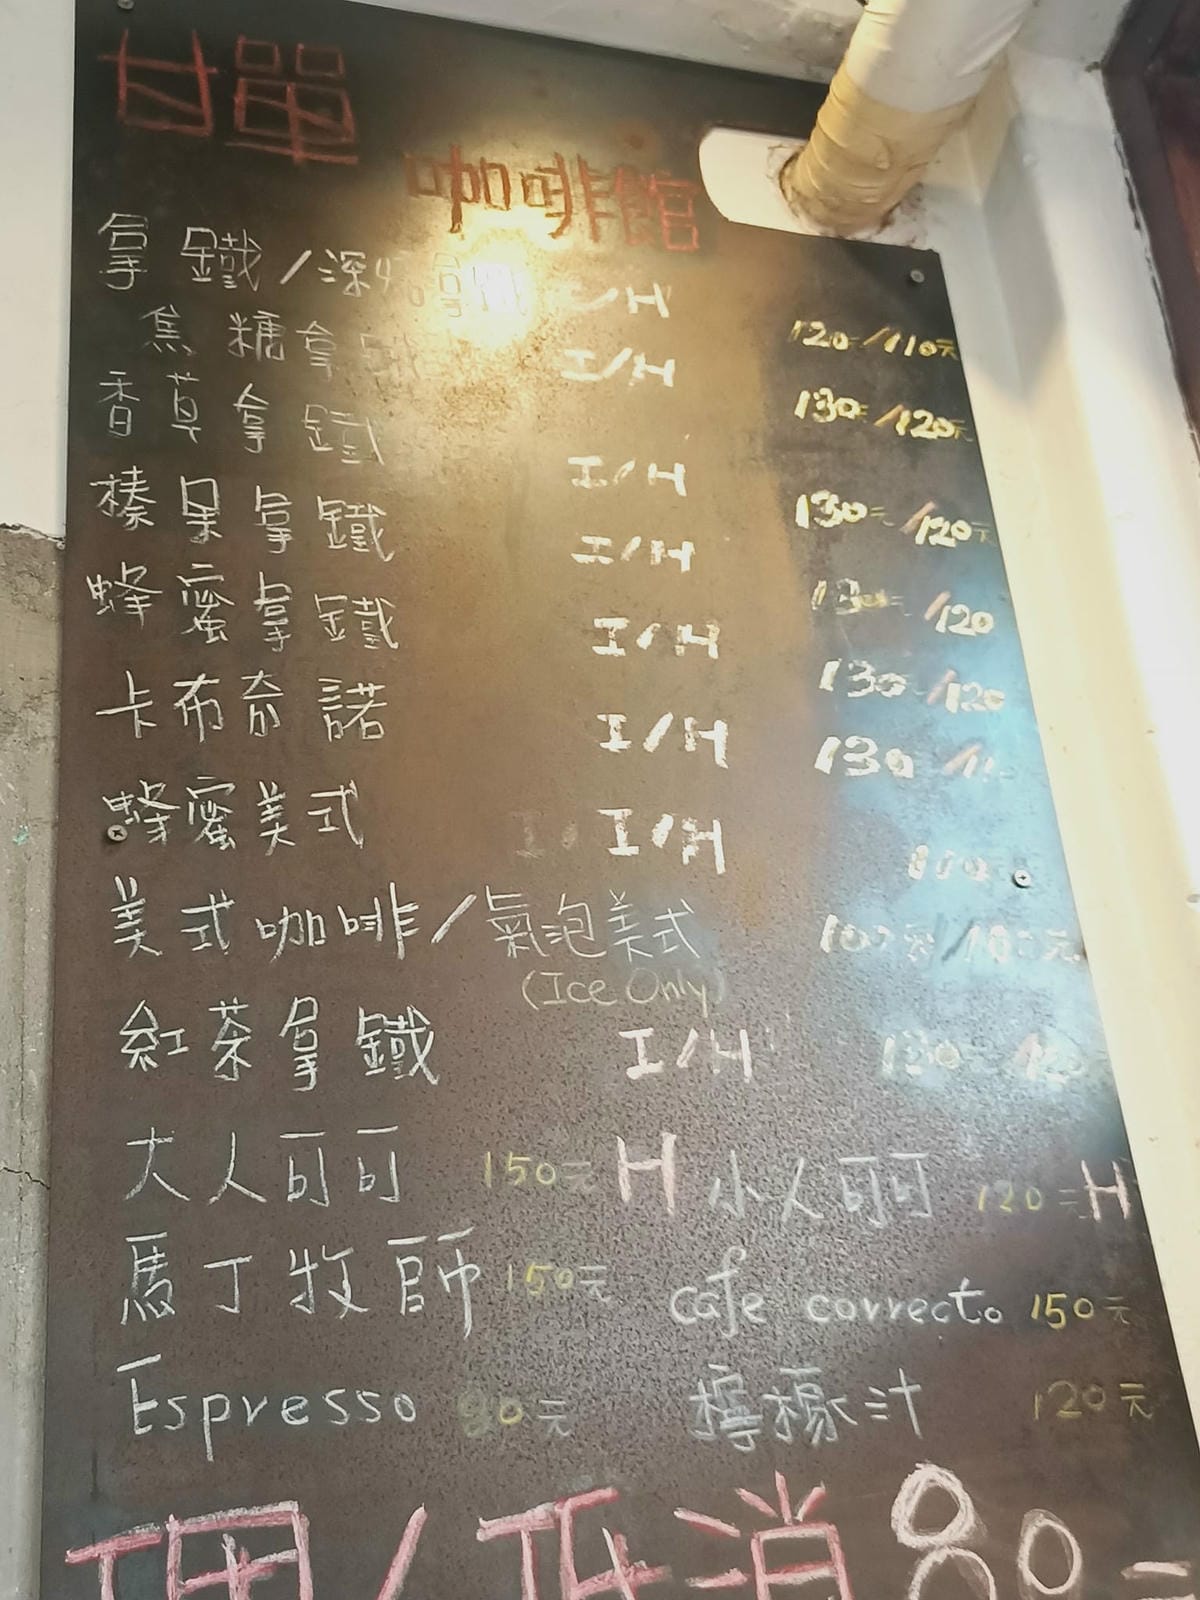 甘單
咖啡館
拿鐵/深焙拿鐵 I/H 120元/110元
焦糖拿鐵 I/H 130元/120元
香草拿鐵 I/H 130元/120元
榛果拿鐵 I/H 130元/120
蜂蜜拿鐵 I/H 130元/120
卡布奇諾 I/H 130
蜂蜜美式 I/H 110元
美式咖啡/氣泡美式 100元/100元
(Ice Only)
紅茶拿鐵 I/H 130元 120
大人可可 150元 H 小人可可 120元 H
馬丁牧師 150元 cafe correcto 150元
Espresso 80元 檸檬汁 120元
低消80